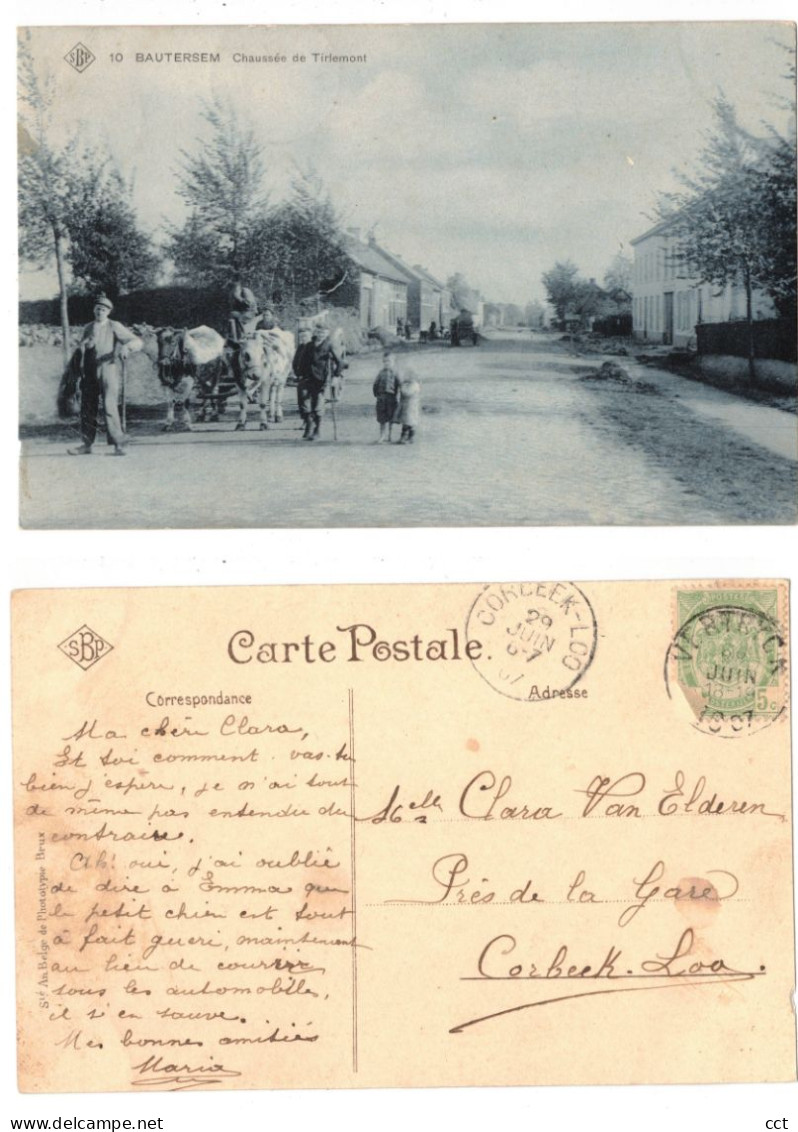 SBP 10 BAUTERSEM Chaussée de Tirlemont
SBP
Carte Postale.
CORBEEK-LOO
29
JUIN
6-7
07
VERTRYCK
JUIN
5c
Correspondance
Adresse
Ma chère Clara,
Et toi comment vas-tu
bien j'espère, je n'ai tout
de même pas entendu du
contraire.
Ah! oui, j'ai oublié
de dire à Emma que
le petit chien est tout
à fait guéri, maintenant
au lieu de courrir
sous les automobille,
il s'en sauve.
Mes bonnes amitiés
Maria
Melle Clara Van Elderen
Près de la Gare
Corbeek-Loo.
Sté An. Belge de Phototypie Brux
cct